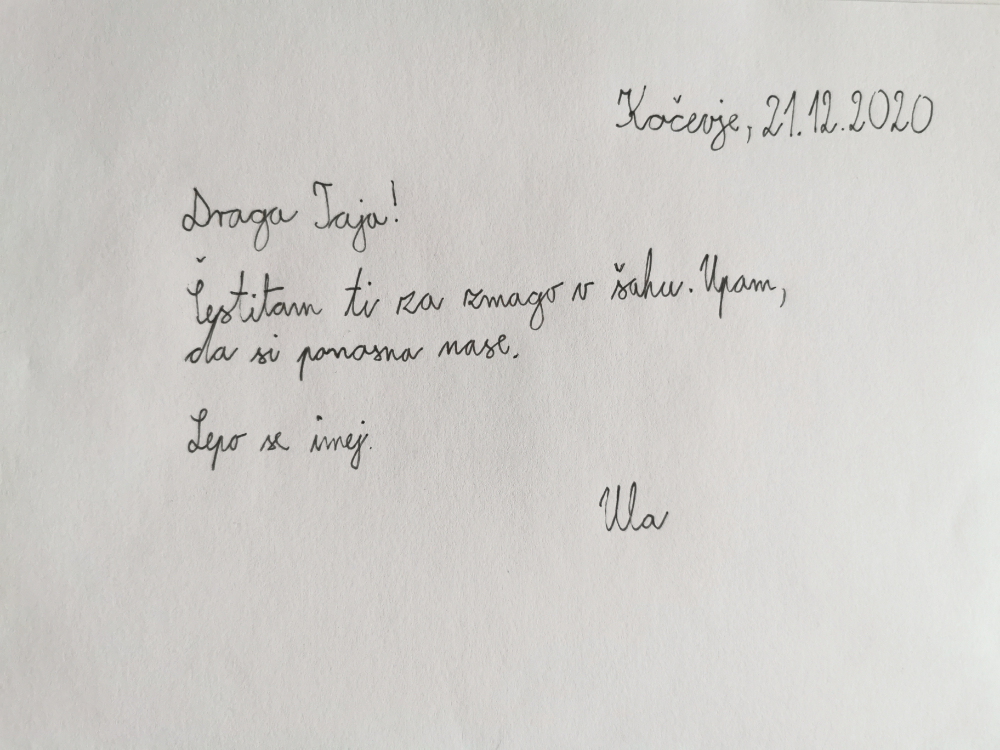 Kočevje, 21.12.2020
Draga Taja!
Čestitam ti za zmago v šahu. Upam,
da si ponosna nase.
Lepo se imej.
Ula